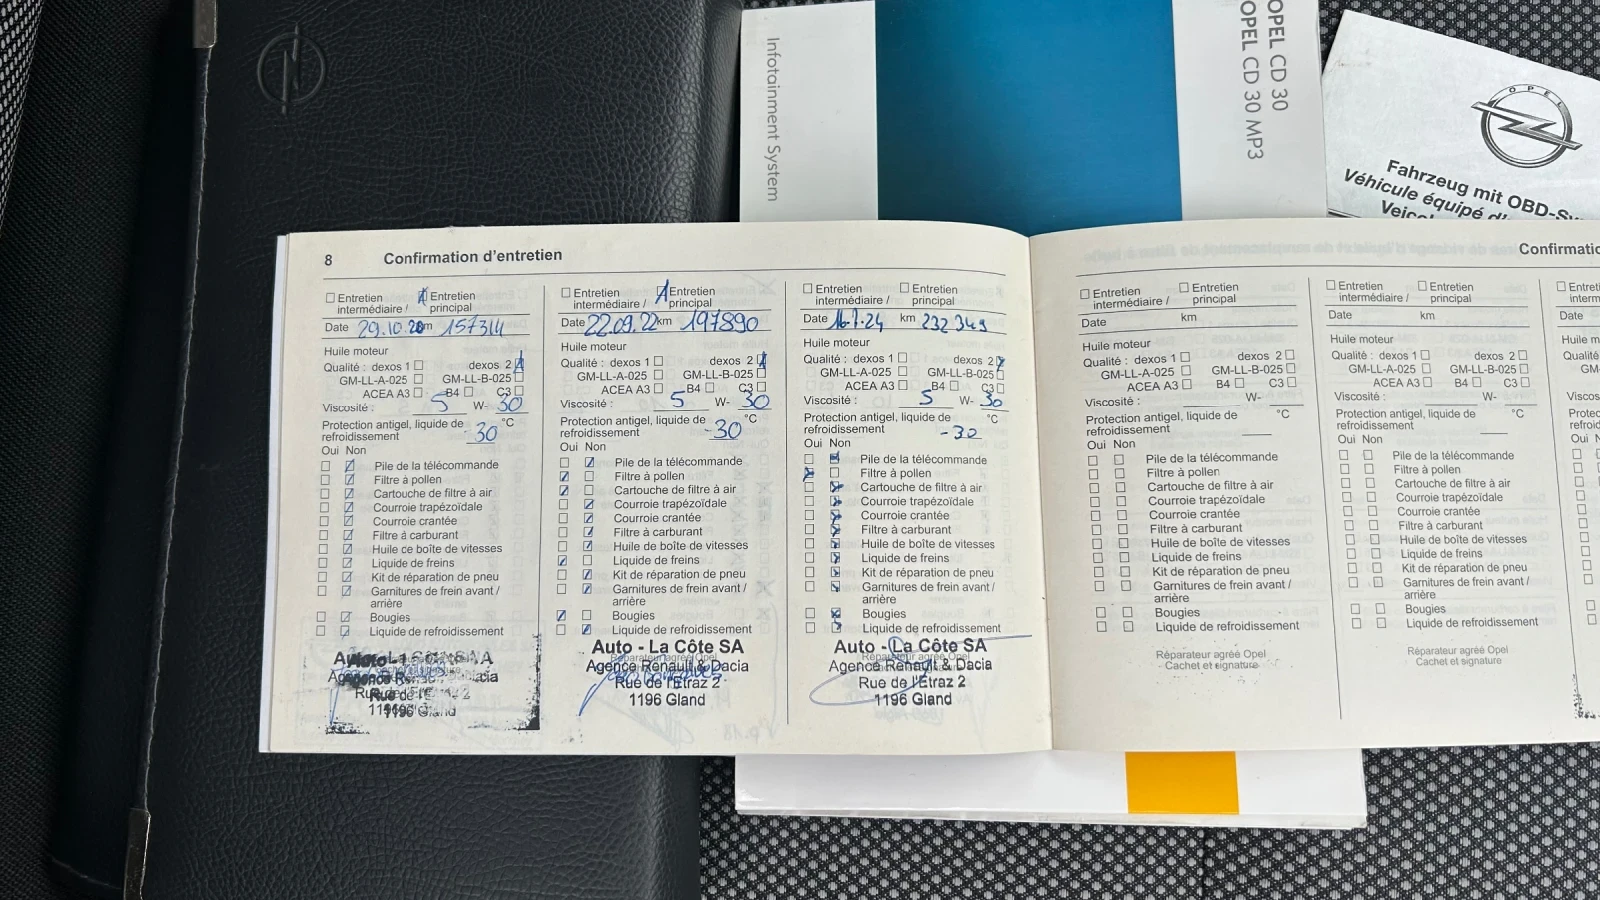 Infotainment System
OPEL CD 30
OPEL CD 30 MP3
OPEL
Fahrzeug mit OBD-Sy
Véhicule équipé d'
Veicol
8 Confirmation d'entretien
Entretien intermédiaire / Entretien principal
Date 29.10.20 km 157314
Huile moteur
Qualité : dexos 1 dexos 2
GM-LL-A-025 GM-LL-B-025
ACEA A3 B4 C3
Viscosité : 5 W- 30
Protection antigel, liquide de
refroidissement -30 °C
Oui Non
Pile de la télécommande
Filtre à pollen
Cartouche de filtre à air
Courroie trapézoïdale
Courroie crantée
Filtre à carburant
Huile de boîte de vitesses
Liquide de freins
Kit de réparation de pneu
Garnitures de frein avant /
arrière
Bougies
Liquide de refroidissement
1196 Gland
Entretien intermédiaire / Entretien principal
Date 22.09.22 km 197890
Huile moteur
Qualité : dexos 1 dexos 2
GM-LL-A-025 GM-LL-B-025
ACEA A3 B4 C3
Viscosité : 5 W- 30
Protection antigel, liquide de
refroidissement -30 °C
Oui Non
Pile de la télécommande
Filtre à pollen
Cartouche de filtre à air
Courroie trapézoïdale
Courroie crantée
Filtre à carburant
Huile de boîte de vitesses
Liquide de freins
Kit de réparation de pneu
Garnitures de frein avant /
arrière
Bougies
Liquide de refroidissement
Auto - La Côte SA
Réparateur agréé Opel
Agence Renault & Dacia
Rue de l'Etraz 2
1196 Gland
Entretien intermédiaire / Entretien principal
Date 16.7.24 km 232349
Huile moteur
Qualité : dexos 1 dexos 2
GM-LL-A-025 GM-LL-B-025
ACEA A3 B4 C3
Viscosité : 5 W- 30
Protection antigel, liquide de
refroidissement -30 °C
Oui Non
Pile de la télécommande
Filtre à pollen
Cartouche de filtre à air
Courroie trapézoïdale
Courroie crantée
Filtre à carburant
Huile de boîte de vitesses
Liquide de freins
Kit de réparation de pneu
Garnitures de frein avant /
arrière
Bougies
Liquide de refroidissement
Auto - La Côte SA
Réparateur agréé Opel
Agence Renault & Dacia
Rue de l'Etraz 2
1196 Gland
Confirmatio
Entretien intermédiaire / Entretien principal
Date km
Huile moteur
Qualité : dexos 1 dexos 2
GM-LL-A-025 GM-LL-B-025
ACEA A3 B4 C3
Viscosité : W-
Protection antigel, liquide de
refroidissement °C
Oui Non
Pile de la télécommande
Filtre à pollen
Cartouche de filtre à air
Courroie trapézoïdale
Courroie crantée
Filtre à carburant
Huile de boîte de vitesses
Liquide de freins
Kit de réparation de pneu
Garnitures de frein avant /
arrière
Bougies
Liquide de refroidissement
Réparateur agréé Opel
Cachet et signature
Entretien intermédiaire / Entretien principal
Date km
Huile moteur
Qualité : dexos 1 dexos 2
GM-LL-A-025 GM-LL-B-025
ACEA A3 B4 C3
Viscosité : W-
Protection antigel, liquide de
refroidissement °C
Oui Non
Pile de la télécommande
Filtre à pollen
Cartouche de filtre à air
Courroie trapézoïdale
Courroie crantée
Filtre à carburant
Huile de boîte de vitesses
Liquide de freins
Kit de réparation de pneu
Garnitures de frein avant /
arrière
Bougies
Liquide de refroidissement
Réparateur agréé Opel
Cachet et signature
Date
Huile m
Qualité